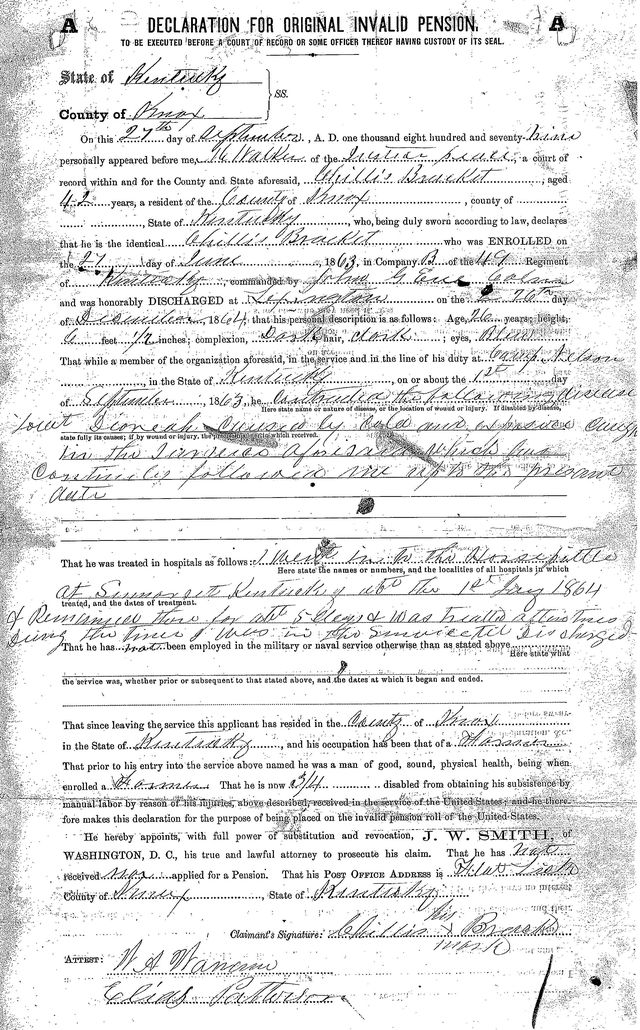 A DECLARATION FOR ORIGINAL INVALID PENSION. A
TO BE EXECUTED BEFORE A COURT OF RECORD OR SOME OFFICER THEREOF HAVING CUSTODY OF ITS SEAL.
State of Kentucky
ss.
County of Knox
On this 27th day of September, A. D. one thousand eight hundred and seventy-nine
personally appeared before me, Walker of the , a court of
record within and for the County and State aforesaid, Chillis Bracket, aged
42 years, a resident of the County of Knox, county of
, State of Kentucky, who, being duly sworn according to law, declares
that he is the identical Chillis Bracket who was ENROLLED on
the 27 day of June, 1863, in Company B of the 49 Regiment
of Kentucky, commanded by John G Eve
and was honorably DISCHARGED at Lexington on the 26th day
of December, 1864; that his personal description is as follows: Age, 26 years; height,
6 feet ½ inches; complexion, Dark; hair, dark; eyes, Blue
That while a member of the organization aforesaid, in the service and in the line of his duty at Camp Nelson
, in the State of Kentucky, on or about the 1st day
of September, 1863, he Contracted the following disease
Here state name or nature of disease, or the location of wound or injury. If disabled by disease,
to wit caused by cold and
state fully its causes; if by wound or injury, the precise manner in which received.
in the service aforesaid which has
followed me up to the present
date
That he was treated in hospitals as follows: I went in to the
Here state the names or numbers, and the localities of all hospitals in which
at Kentucky abt the 1st Jany 1864
treated, and the dates of treatment.
& Remained there for abt 5 Days & was treated
the time I was in the Discharged
That he has not been employed in the military or naval service otherwise than as stated above
Here state what
the service was, whether prior or subsequent to that stated above, and the dates at which it began and ended.
That since leaving the service this applicant has resided in the County of Knox
in the State of Kentucky, and his occupation has been that of a Farmer
That prior to his entry into the service above named he was a man of good, sound, physical health, being when
enrolled a Farmer That he is now 3/4 disabled from obtaining his subsistence by
manual labor by reason of his injuries, above described, received in the service of the United States; and he there-
fore makes this declaration for the purpose of being placed on the invalid pension roll of the United States.
He hereby appoints, with full power of substitution and revocation, J. W. SMITH, of
WASHINGTON, D. C., his true and lawful attorney to prosecute his claim. That he has not
received nor applied for a Pension. That his POST OFFICE ADDRESS is Flat Lick
County of Knox, State of Kentucky
Claimant's Signature: Chillis his x mark Bracket
ATTEST: W A
Elias Patterson